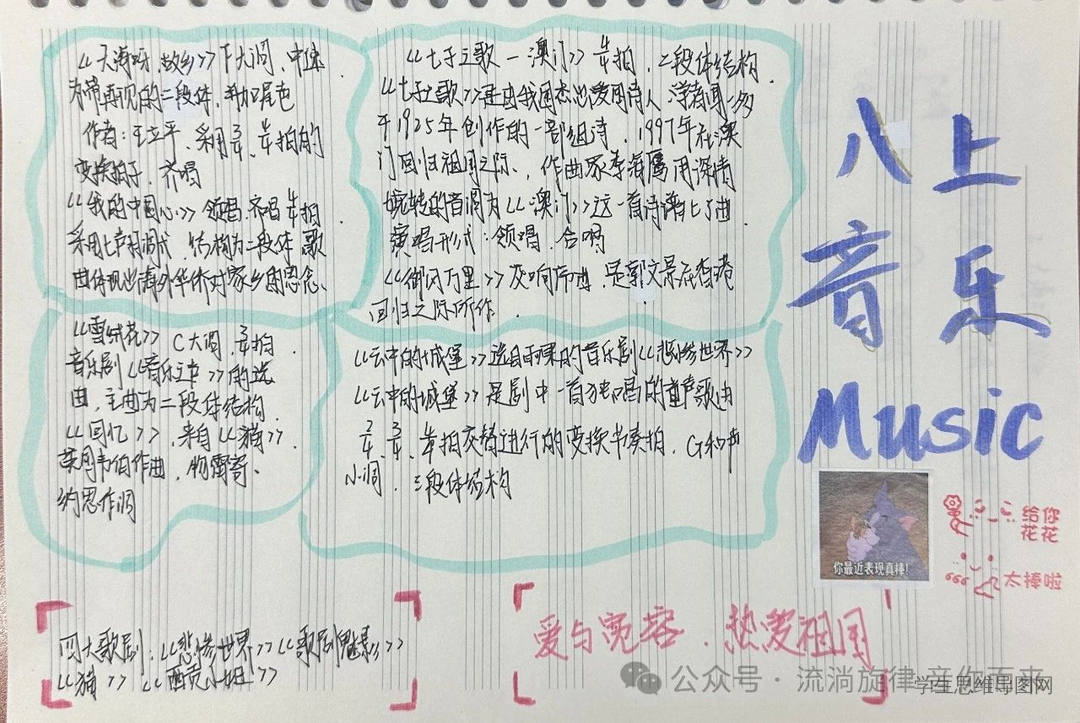 《大海呀,故乡》F大调,中速
为带再现的二段体,并加尾色
作者:王立平,采用3/4、4/4拍的
变换拍子,齐唱
《我的中国心》领唱、齐唱 4/4拍
采用七声调式,结构为二段体 歌
曲体现出海外华侨对家乡的思念、
《七子之歌—澳门》4/4拍,二段体结构.
《七子之歌》是由我国杰出爱国诗人、学者闻一多
于1925年创作的一部组诗,1997年在澳
门回归祖国之际,作曲家李海鹰用深情
婉转的音调为《澳门》这一首诗谱上了曲
演唱形式:领唱、合唱
《御风万里》交响序曲,是郭文景在香港
回归之际所作.
《雪绒花》C大调,3/4拍.
音乐剧《音乐之声》的选
曲,主曲为二段体结构.
《回忆》,来自《猫》.
英国韦伯作曲,
作词
《云中的城堡》选自雨果的音乐剧《悲惨世界》
《云中的城堡》是剧中一首独唱的童声歌曲
2/4、3/4、4/4拍交替进行的变换节奏拍,G和声
小调,三段体结构
八上
音乐
Music
你最近表现真棒!
给你
花花
太棒啦
四大歌剧:《悲惨世界》《歌剧魅影》
《猫》《西贡小姐》
爱与宽容、热爱祖国
公众号·流淌旋律 音你而来
学生思维导图网